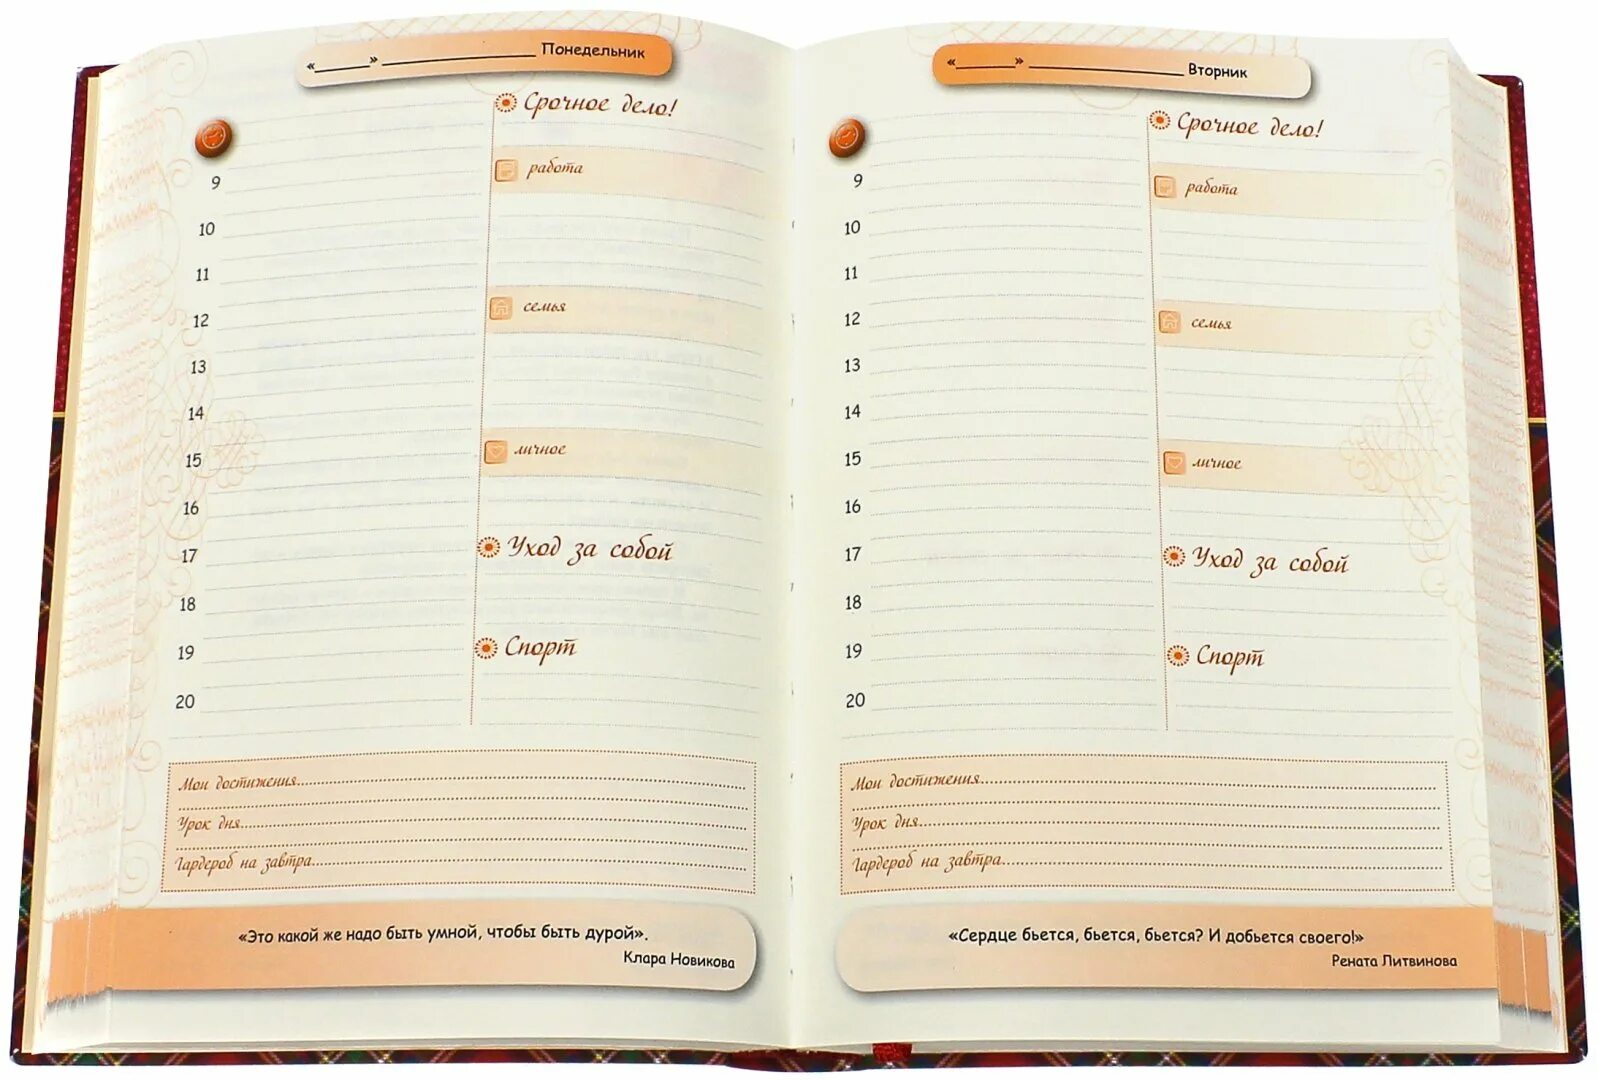 «_____» ______________ Понедельник
Срочное дело!
работа
9
10
11
семья
12
13
14
личное
15
16
Уход за собой
17
18
Спорт
19
20
Мои достижения
Урок дня
Гардероб на завтра
«Это какой же надо быть умной, чтобы быть дурой».
Клара Новикова
«_____» ______________ Вторник
Срочное дело!
9
работа
10
11
12
семья
13
14
15
личное
16
17
Уход за собой
18
19
Спорт
20
Мои достижения
Урок дня
Гардероб на завтра
«Сердце бьется, бьется, бьется? И добьется своего!»
Рената Литвинова